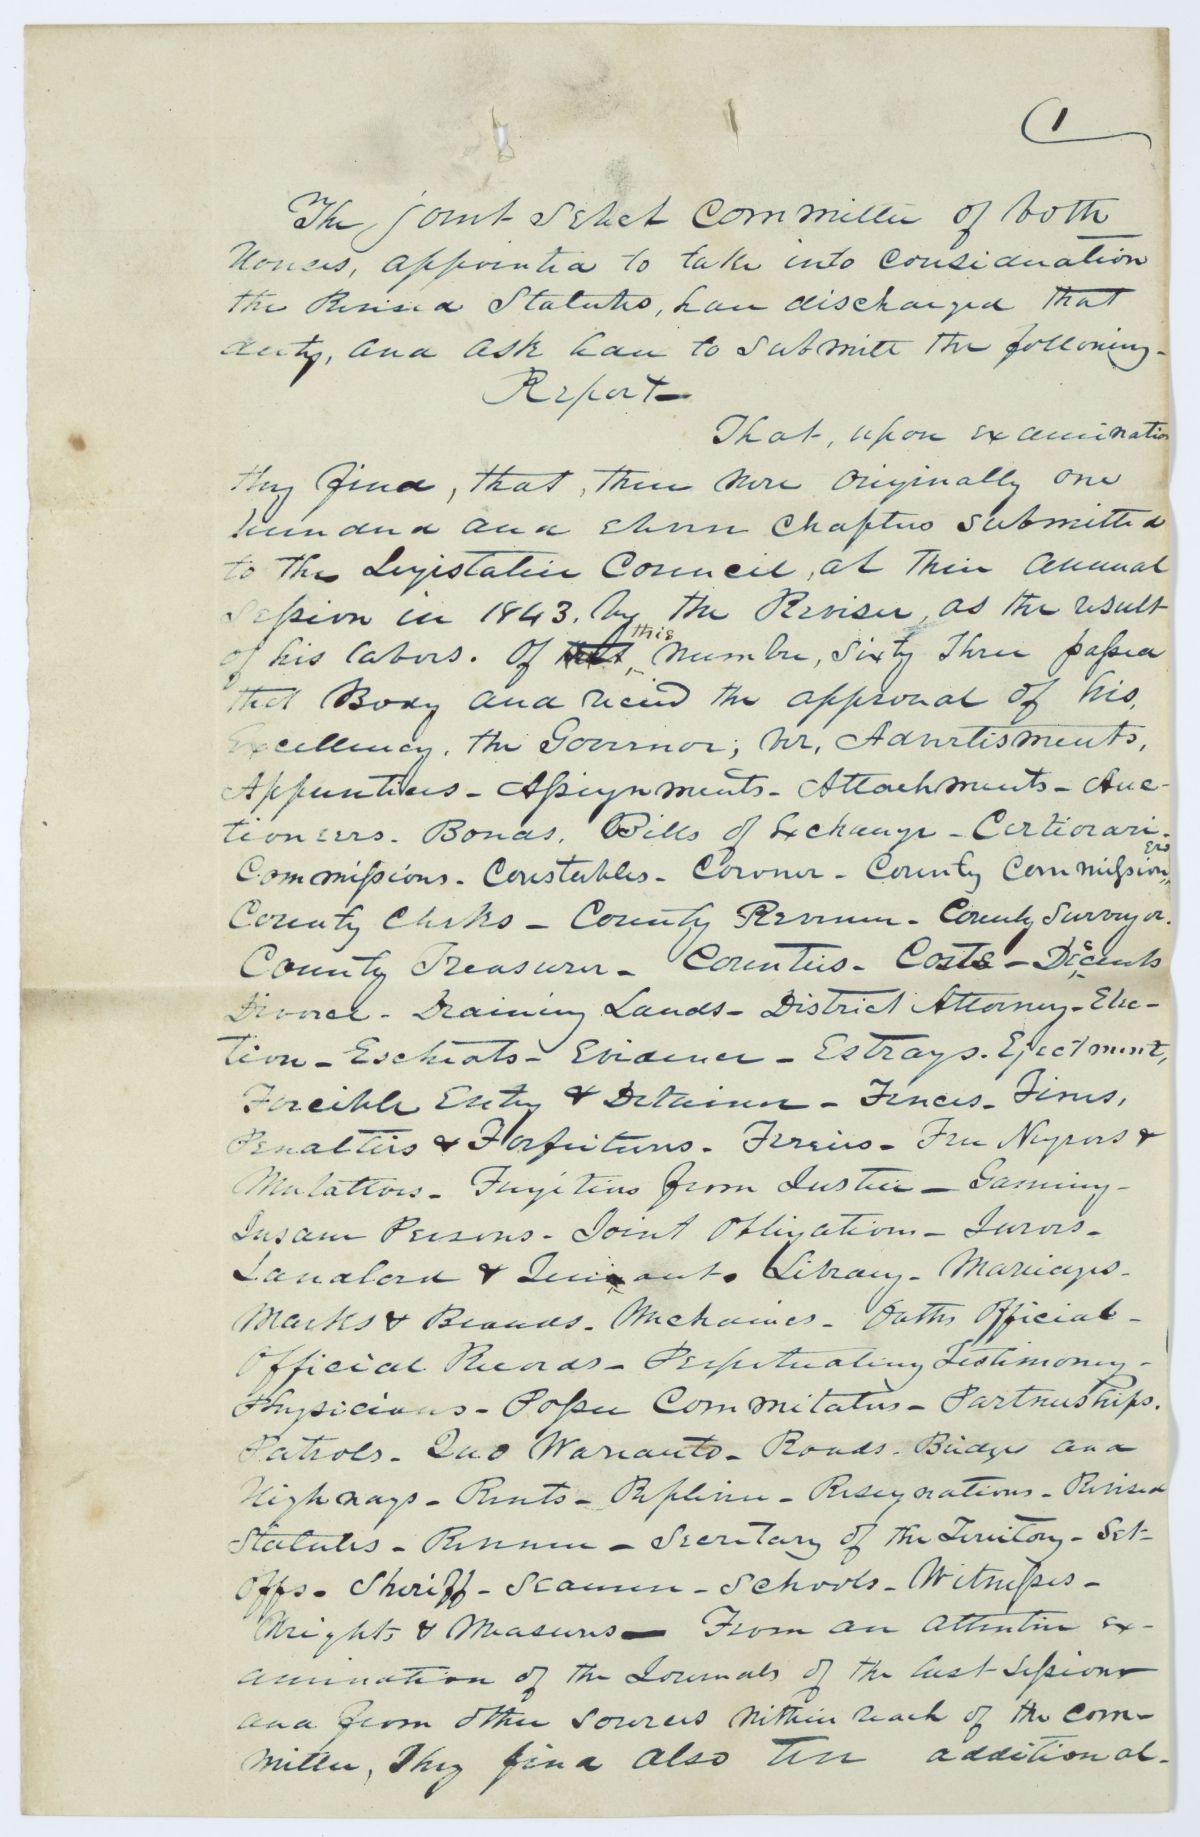 1
The joint Select Committee of both
Houses, appointed to take into consideration
the Revised Statutes, have discharged that
duty, and ask leave to submitt the following-
Report-
That, upon examination
they find, that, there were originally one
hundred and eleven Chapters submitted
to the Legislative Council, at their annual
Session in 1843. by the Reviser, as the result
of his labors. Of this number, Sixty Three passed
that Body and recied the approval of his
Excellency, the Governor; viz, Advertisments,
Apprentices - Assignments - Attachments - Auc-
tioneers. Bonds. Bills of Exchange - Certiorari -
Commissions - Constables - Coroner - County Commissioners
County Clerks - County Revenue - County Surveyor.
County Treasurer - Counties - Costs - Decents
Divorce - Draining Lands - District Attorney - Elec-
tion - Escheats - Evidence - Estrays. Ejectment,
Forcible Entry & Detainer - Fences - Fines,
Penalties & Forfeitures - Ferries - Free Negroes &
Mulattoes - Fugitives from Justice - Gaming -
Insane Persons - Joint Obligations - Jurors -
Landlord & Tenant. Library - Marriages -
Marks & Brands - Mechanics - Oaths Official -
Official Records - Perpetuating Testimony -
Physicians - Posse Commitatus - Partnerships.
Patrols - Quo Warranto - Roads. Bridges and
Highways - Rents - Replevin - Resignations - Revised
Statutes - Revenue - Secretary of the Territory - Set-
Offs - Sheriff - Seamen - Schools - Witnesses -
Weights & Measures - From an attentive ex-
amination of the Journals of the last Session
and from other sources within reach of the com-
mittee, They find also ten additional-